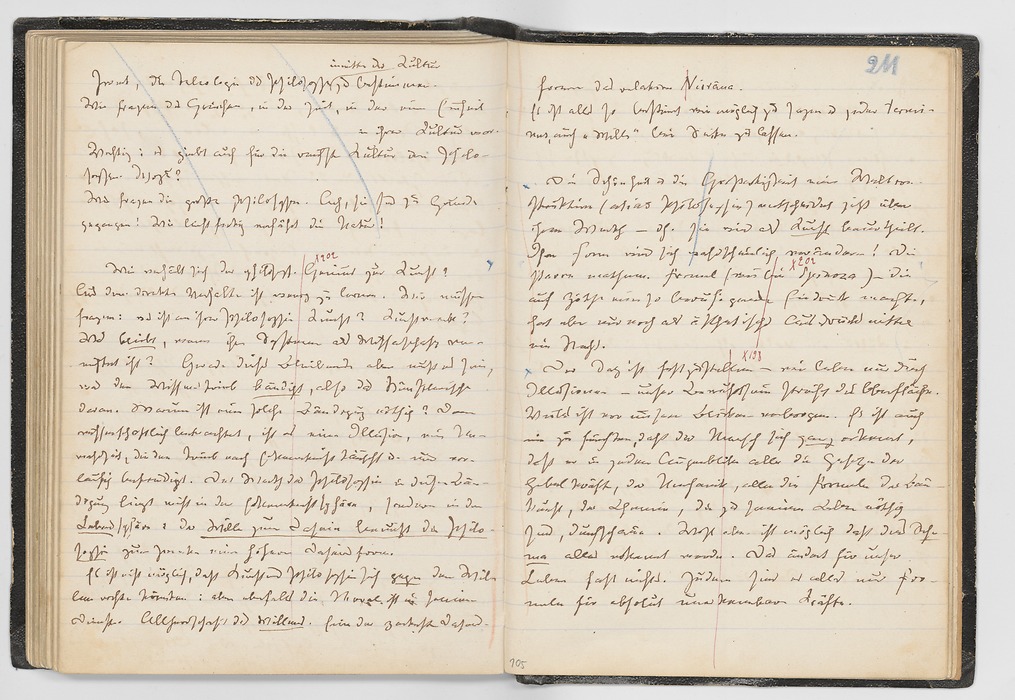 inmitten der Kultur
die Teleologie des Philosophen zu bestimmen.
Wir fragen die Griechen, in der Zeit, in der eine Einheit
in ihrer Kultur war.
Wichtig: es giebt auch für die reichste Kultur den Philo-
sophen. Wozu?
Wir fragen die großen Philosophen. Ach, sie sind zu Grunde
gegangen! Wie leichtfertig verfährt die Natur!
X 202
Wie verhält sich der philosoph. Genius zur Kunst?
Aus dem direkten Verhalten ist wenig zu lernen. Wir müssen
fragen: was ist an seiner Philosophie Kunst? Kunstwerk?
Was bleibt, wenn sein System als Wissenschaft ver-
nichtet ist? Gerade dieses Bleibende aber muß es sein,
was den Wissenstrieb bändigt, also das Künstlerische
daran. Warum ist eine solche Bändigung nöthig? Denn
wissenschaftlich betrachtet, ist es eine Illusion, eine Un-
wahrheit, die den Trieb nach Erkenntniß täuscht u. nur vor-
läufig befriedigt. Der Werth der Philosophie in dieser Bän-
digung liegt nicht in der Erkenntnißsphäre, sondern in der
Lebenssphäre: der Wille zum Dasein benutzt die Philo-
sophie zum Zwecke einer höheren Daseinsform.
Es ist nicht möglich, daß Kunst und Philosophie sich gegen den Wil-
len richten könnten: aber ebenfalls die Moral ist in seinem
Dienste. Allherrschaft des Willens. Eine der zartesten Daseins-
105
211
formen das relative Nirvana.
Es ist alles so bestimmt wie möglich zu sagen u jeder termi-
nus, auch „Wille“ bei Seite zu lassen.
Die Schönheit u die Großartigkeit einer Weltcon-
struktion (alias Philosophie) entscheidet jetzt über
ihren Werth — dh. sie wird als Kunst beurtheilt.
Ihre Form wird sich wahrscheinlich verändern! Die
X 202
starre mathem. Formel (wie bei Spinoza) — die
auf Göthe einen so beruhigenden Eindruck machte,
hat eben nur noch als aesthetisches Ausdrucksmittel
ein Recht.
X 198
Der Satz ist festzustellen — wir leben nur durch
Illusionen — unser Bewußtsein streift die Oberfläche.
Vieles ist vor unseren Blicken verborgen. Es ist auch
nie zu fürchten, daß der Mensch sich ganz erkennt,
daß er in jedem Augenblicke alle die Gesetze der
Hebelkräfte, der Mechanik, alle die Formeln der Bau-
kunst, der Chemie, die zu seinem Leben nöthig
sind, durchschaue. Wohl aber ist möglich daß das Sche-
ma alles erkannt werde. Das ändert für unser
Leben fast nichts. Zudem sind es alles nur For-
meln für absolut unerkennbare Kräfte.